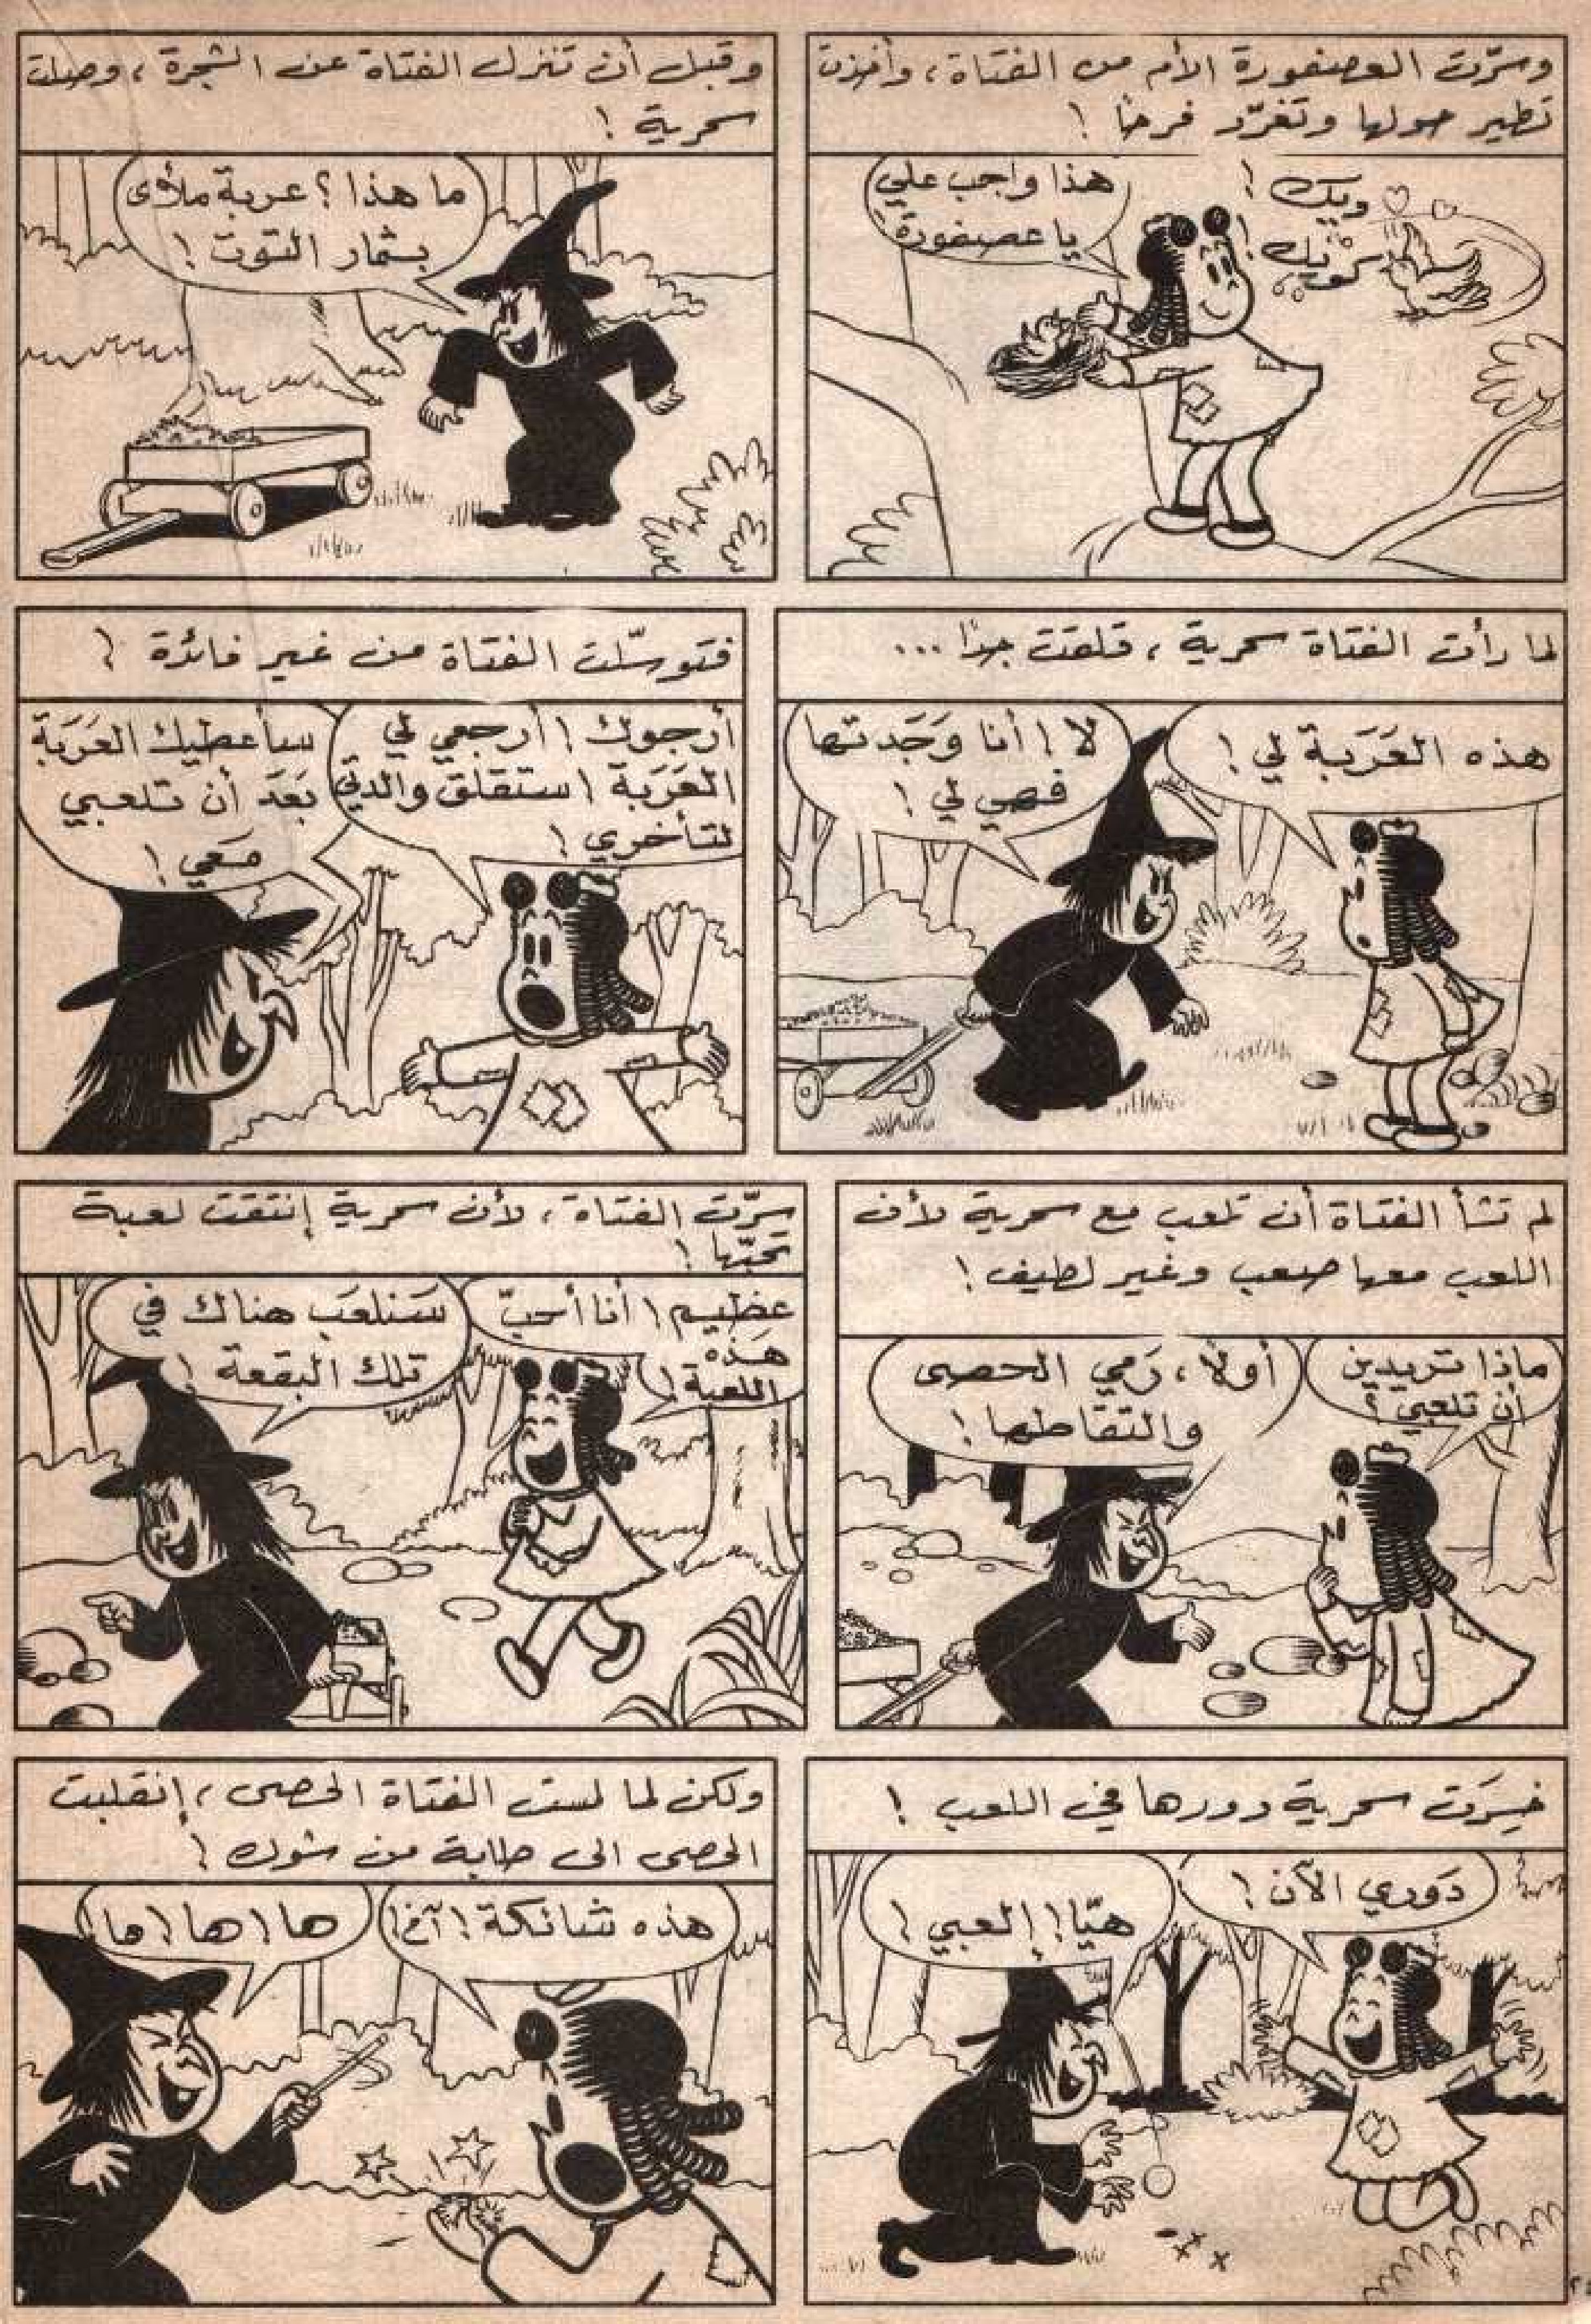 وسرّت العصفورة الأم من الفتاة، وأخذت
تطير حولها وتغرّد فرحًا !
هذا واجب علي
يا عصفورة !
ويك !
كويك !
وقبل أن تنزل الفتاة عن الشجرة، وصلت
سحرية !
ما هذا ؟ عربة ملأى
بثمار التوت !
لما رأت الفتاة سحرية، قلقت جدًا ...
هذه العَرَبة لي !
لا ! أنا وَجَدتها
فهي لي !
فتوسّلت الفتاة من غير فائدة !
أرجوك ! أرجعي لي
العَرَبة ! ستقلق والدتي
لتأخري !
سأعطيك العَرَبة
بَعدَ أن تلعبي
مَعي !
لم تشأ الفتاة أن تلعب مع سحرية لأن
اللعب معها صعب وغير لطيف !
ماذا تريدين
أن تلعبي ؟
أولاً، رَمي الحصى
والتقاطها !
سرّت الفتاة، لأن سحرية إنتقت لعبة
تحبّها !
عظيم ! أنا أحبّ
هَذه
اللعبة !
سَنلعَب هناك في
تلك البقعة !
خسِرَت سحرية دورها في اللعب !
دَوري الآن !
هيّا ! إلعبي !
ولكن لما لمست الفتاة الحصى، إنقلبت
الحصى الى طابة من شوك !
هذه شائكة ! آخ !
ها ! ها ! ها !